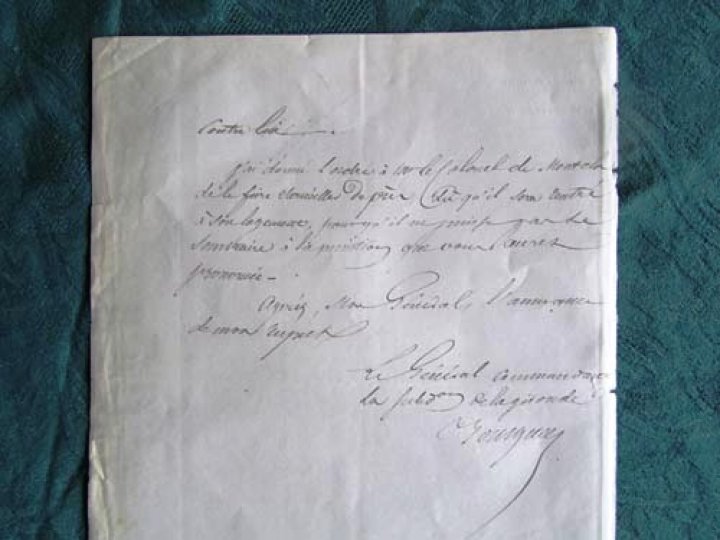 contre lui.
J'ai donné l'ordre à Mr le Colonel de
de le faire surveiller De près Dès qu'il sera rentré
à son logement, pour qu'il ne puisse pas se
soustraire à la punition que vous aurez
prononcée -
Agréez, Mon Général, l'assurance
de mon respect
Le Général commandant
la subdon de la gironde